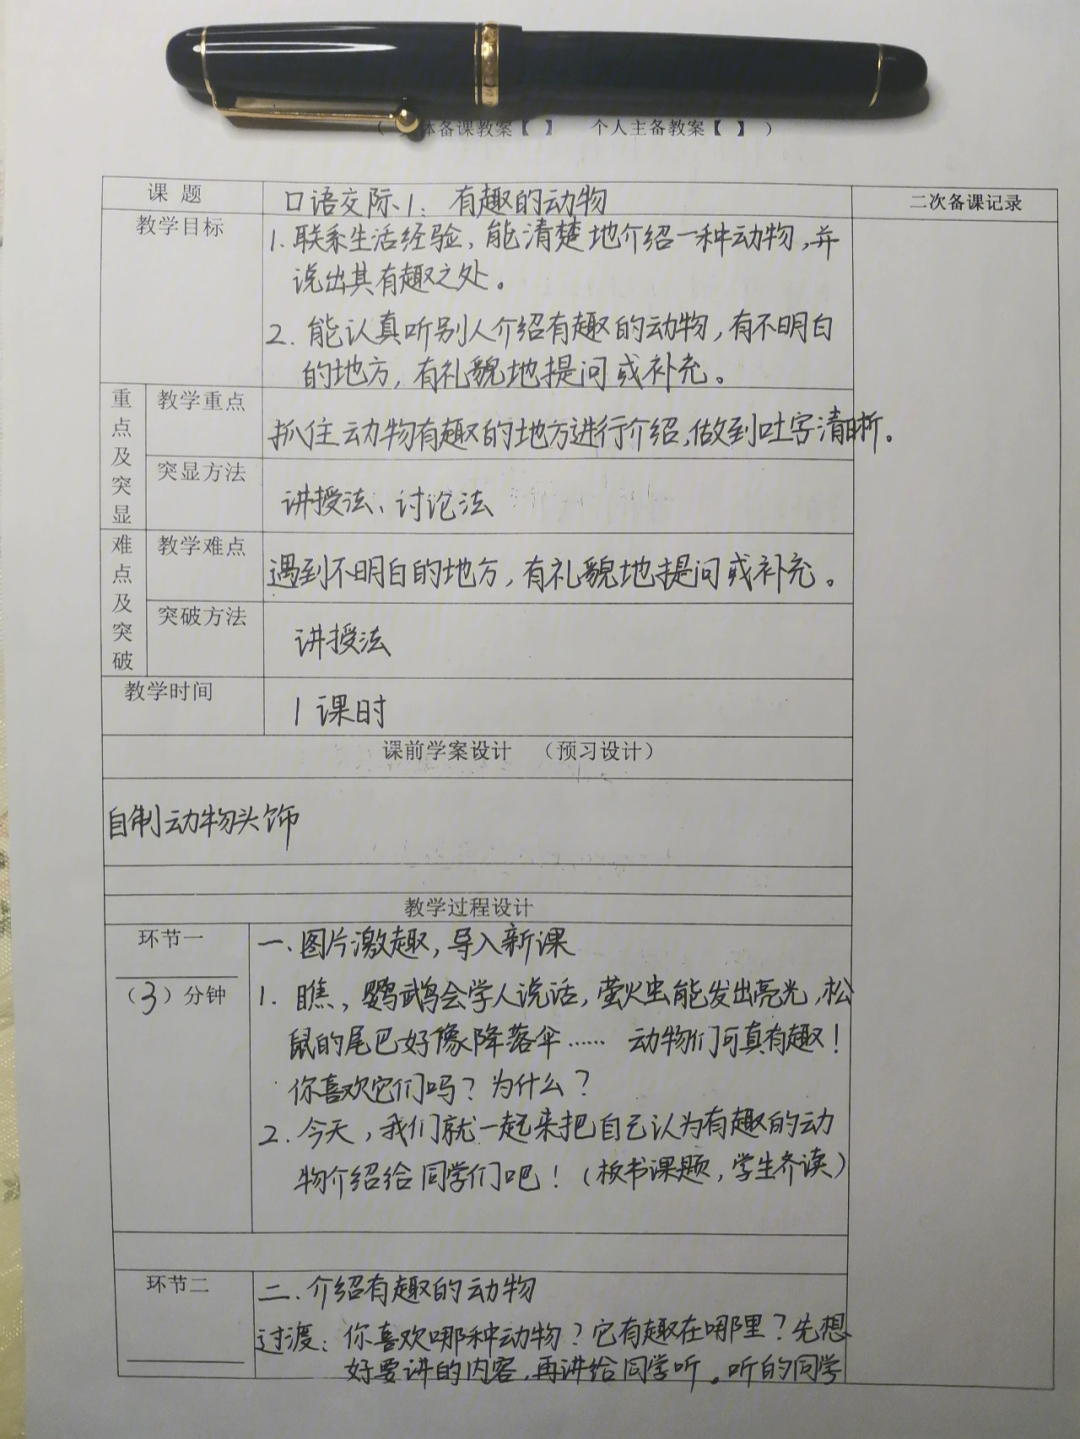 体备课教案【 】 个人主备教案【 】 )
课 题 口语交际1: 有趣的动物 二次备课记录
教学目标
1. 联系生活经验, 能清楚地介绍一种动物, 并
说出其有趣之处。
2. 能认真听别人介绍有趣的动物, 有不明白
的地方, 有礼貌地提问或补充。
重点及突显
教学重点
抓住动物有趣的地方进行介绍, 做到吐字清晰。
突显方法
讲授法、讨论法
难点及突破
教学难点
遇到不明白的地方, 有礼貌地提问或补充。
突破方法
讲授法
教学时间
1 课时
课前学案设计 (预习设计)
自制动物头饰
教学过程设计
环节一
(3)分钟
一. 图片激趣, 导入新课
1. 瞧, 鹦鹉会学人说话, 萤火虫能发出亮光, 松
鼠的尾巴好像降落伞…… 动物们可真有趣!
你喜欢它们吗? 为什么?
2. 今天, 我们就一起来把自己认为有趣的动
物介绍给同学们吧! (板书课题, 学生齐读)
环节二
二. 介绍有趣的动物
过渡: 你喜欢哪种动物? 它有趣在哪里? 先想
好要讲的内容, 再讲给同学听。听的同学